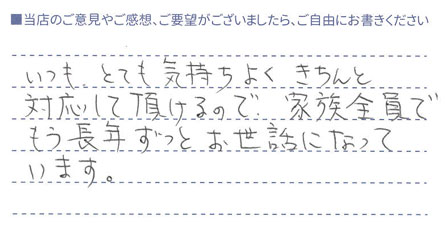 ■当店のご意見やご感想、ご要望がございましたら、ご自由にお書きください
いつも とても気持ちよく きちんと
対応して頂けるので、家族全員で
もう長年ずっと お世話になって
います。